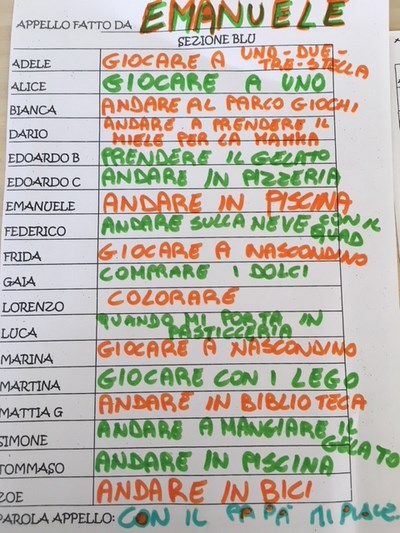 APPELLO FATTO DA EMANUELE
SEZIONE BLU
ADELE GIOCARE A UNO-DUE-
TRE-STELLA
ALICE GIOCARE A UNO
BIANCA ANDARE AL PARCO GIOCHI
DARIO ANDARE A PRENDERE IL
MIELE PER LA MAMMA
EDOARDO B PRENDERE IL GELATO
EDOARDO C ANDARE IN PIZZERIA
EMANUELE ANDARE IN PISCINA
FEDERICO ANDARE SULLA NEVE CON IL
QUAD
FRIDA GIOCARE A NASCONDINO
GAIA COMPRARE I DOLCI
LORENZO COLORARE
LUCA QUANDO MI PORTA IN
PASTICCERIA
MARINA GIOCARE A NASCONDINO
MARTINA GIOCARE CON I LEGO
MATTIA G ANDARE IN BIBLIOTECA
SIMONE ANDARE A MANGIARE IL
GELATO
TOMMASO ANDARE IN PISCINA
ZOE ANDARE IN BICI
PAROLA APPELLO: CON IL PAPÀ MI PIACE